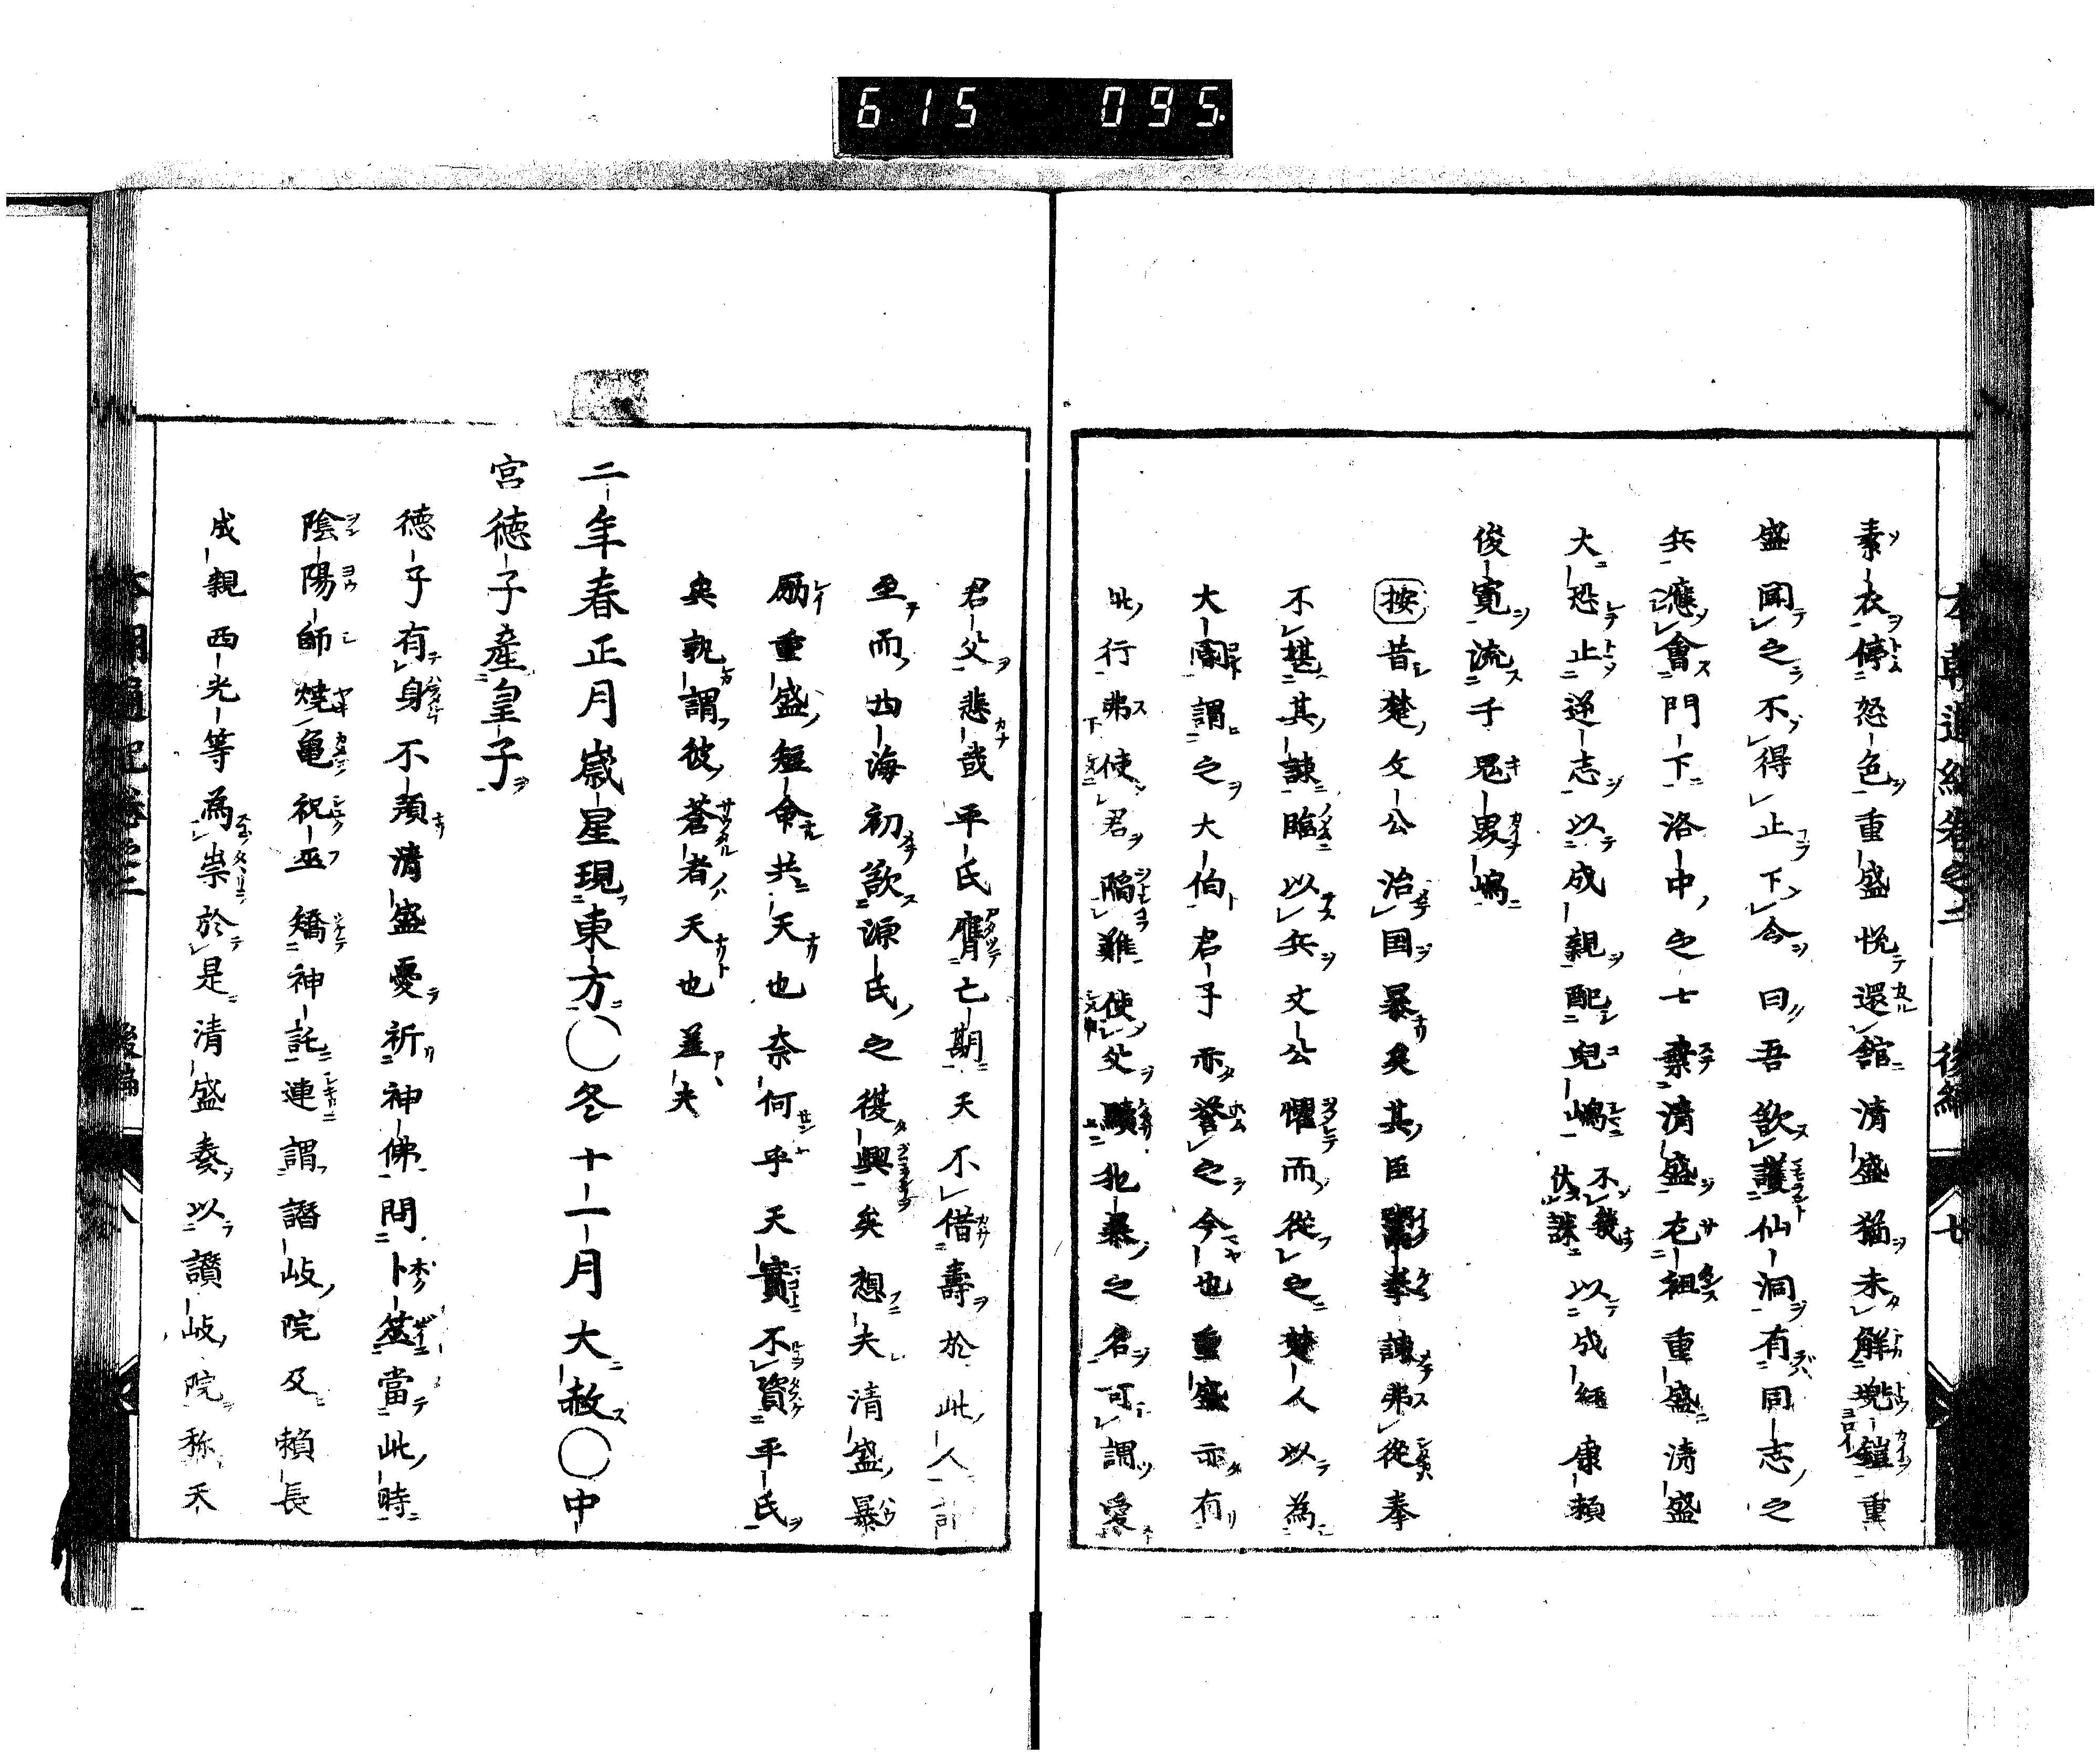 615 095.
本朝通紀卷之二 後編 廿
素衣停怒色重盛悅還館清盛猶未解兜鎧重
盛聞之不得止下令曰吾欲護仙洞有同志之
兵應會門下洛中之士棄清盛左袒重盛清盛
大恐止逆志以成親配兒嶋不幾伏誅以成經康賴
俊寬流千鬼界嶋
按昔楚文公治国暴矣其臣鬻拳諫弗從拳
不堪其諫臨以兵文公懼而從之楚人以為
大閽謂之大伯君子亦誉之今也重盛亦有
此行弗使君陷難使父贖犯暴之名可謂愛
君父悲哉平氏膺亡期天不借壽於此人
至而西海初歆源氏之復興矣想夫清盛暴
厲重盛短命共天也奈何乎天實不資平氏
矣孰謂彼蒼者天也嗟夫
二年春正月歲星現東方〇冬十一月大赦〇中
宮德子產皇子
德子有身不豫清盛憂祈神佛問卜筮當此時
陰陽師燒亀祝巫矯神託連謂讃岐院及賴長
成親西光等為祟於是清盛奏以讃岐院称天